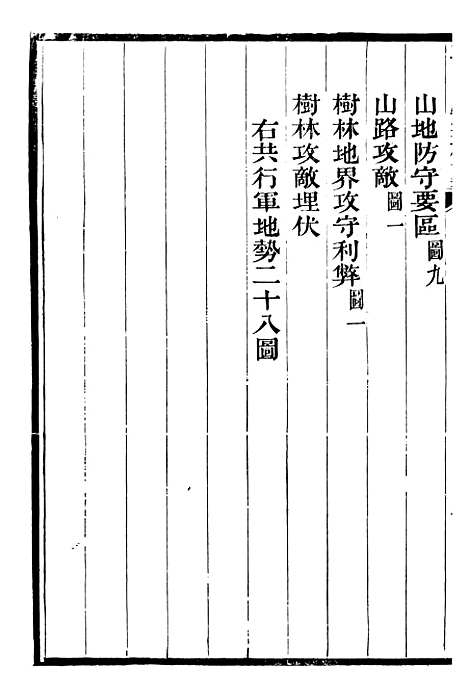 山地防守要區圖九
山路攻敵圖一
樹林地界攻守利弊圖一
樹林攻敵埋伏
右共行軍地勢二十八圖